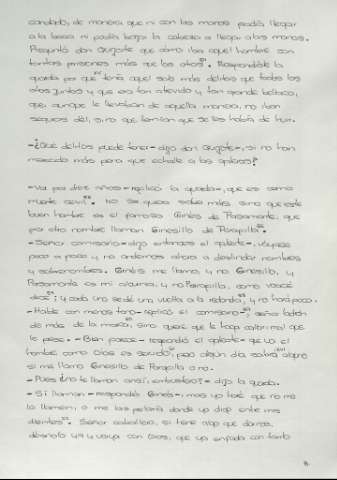 candado, de manera que ni con las manos podía llegar
a la boca ni podía bajar la cabeza a llegar a las manos.
Preguntó don Quijote que cómo iba aquel hombre con
tantas prisiones más que los otros. Respondióle la
guarda por que tenía aquel solo más delitos que todos los
otros juntos y que era tan atrevido y tan grande bellaco,
que, aunque le llevaban de aquella manera, no iban
seguros dél, sino que temían que se les había de huir.
-¿Qué delitos puede tener - dijo don Quijote -, si no han
merecido más pena que echalle a las galeras?
- Va por diez años - replicó la guarda -, que es como
muerte cevil. No se quiera saber más sino que este
buen hombre es el famoso Ginés de Pasamonte, que
por otro nombre llaman Ginesillo de Parapilla.
- Señor comisario - dijo entonces el galeote -, váyase
poco a poco y no andemos ahora a deslindar nombres
y sobrenombres. Ginés me llamo, y no Ginesillo, y
Pasamonte es mi alcurnia, y no Parapilla, como voacé
dice; y cada uno se dé una vuelta a la redonda, y no hará poco.
- Hable con menos tono - replicó el comisario -, señor ladrón
de más de la marca, si no quiere que le haga callar, mal que
le pese. - Bien parece - respondió el galeote - que va el
hombre como Dios es servido, pero algún día sabrá alguno
si me llamo Ginesillo de Parapilla o no.
- Pues ¿no te llaman ansí, embustero? - dijo la guarda.
- Sí llaman - respondió Ginés -, mas yo haré que no me
lo llamen, o me las pelaría donde yo digo entre mis
dientes. Señor caballero, si tiene algo que darnos,
dénoslo ya y vaya con Dios, que ya enfada con tanto